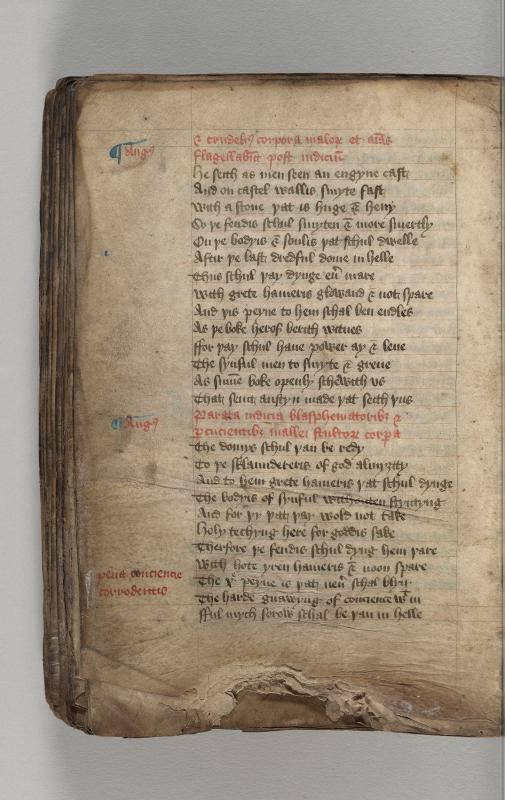 ¶ Augꝰ
& crudelit corpora malorum et aīas
flagellabūt post iudiciū
He seith as men seen an engyne cast
And on castel wallis smyte fast
With a stone þat is huge & heuy
So þe fendis schul smyten & more smertly
On þe bodyis & soulis þat schul dwelle
Aftir þe last dredful dome in helle
Thus schul þay dynge euꝰ mare
With grete hameris glowand & not spare
And þis peyne to hem schal ben endles
As þe boke herof berith witnes
ffor þay schul haue power ay & leue
The synful men to smyte & greue
As summe boke openly schewith vs
That seint austyn made þat seith þus
¶ Augꝰ
Parata iudicia blasphematoribꝫ &
ꝑcucientibꝫ mallei stultorꝫ corpa
The domys schul þan be redy
To þe sklaundereris of god almyȝty
And to hem grete hameris þat schul dynge
The bodyis of synful withouten styntyng
And for þy þat þay wold not take
Holy techyng here for goddis sake
Therfore þe fendis schul dyng hem þare
With hote yren hameris & noon spare
pena conciencie
corrodentis
The xꝰ peyne is þat neuꝰ schal blyn
The harde gnawyng of concience wͭ in
fful mych sorow schal be þan in helle